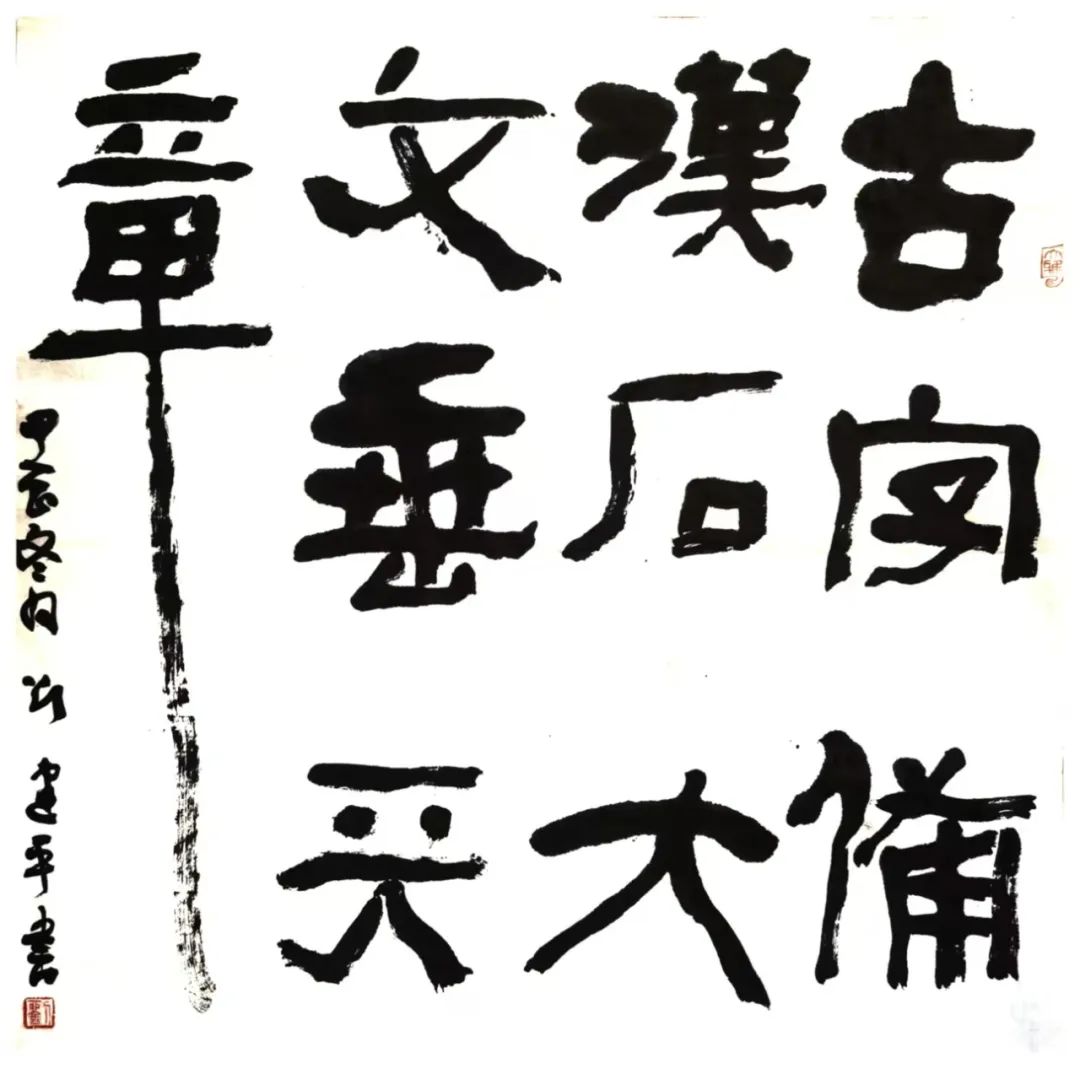 古字備
漢石大
文垂天
章
甲辰冬月 刘建平書